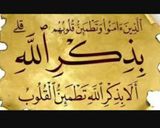 الَّذِينَ ءَامَنُوا وَتَطْمَئِنُّ قُلُوبُهُم
بِذِكْرِ اللَّهِ قلے
أَلَا بِذِكْرِ اللَّهِ تَطْمَئِنُّ الْقُلُوبُ